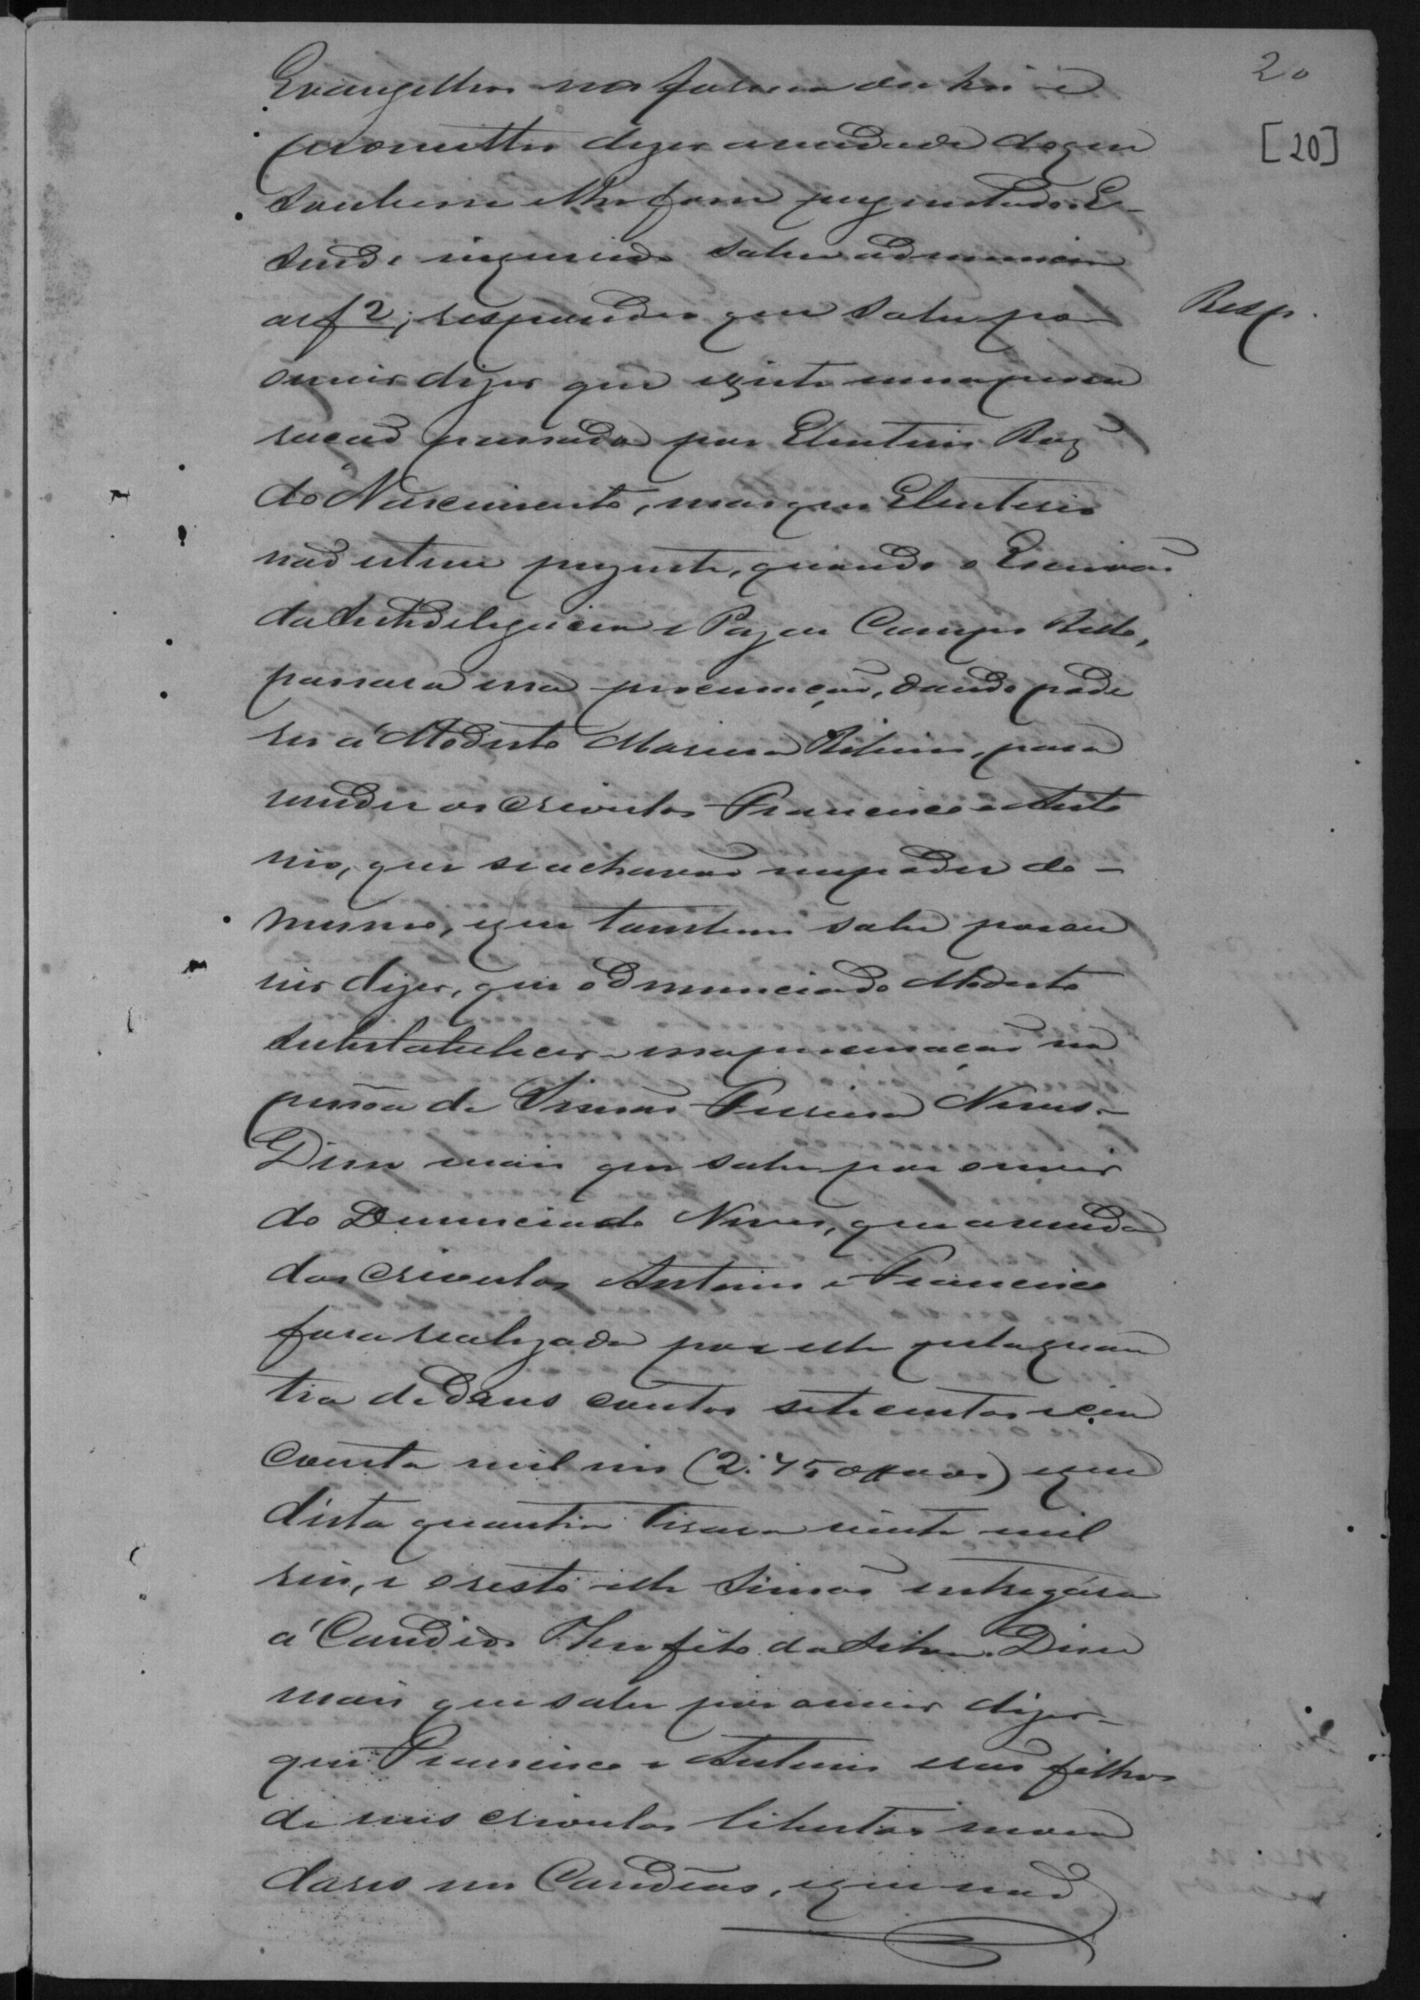 20
[20]
Evangelhos na forma da lei e
prometteo dizer a verdade do que
soubesse e lhe fosse perguntado. E
sendo inquirido sobre a denuncia
de f 2; respondeo que sabe por
Resp.
ouvir dizer que existe uma procu
ração passada por Eleuterio Roz
do Nascimento, mas que Eleuterio
não esteve presente, quando o Escrivão
da Subdelegacia e Paz de Campo Bello,
passara essa procuração, dando pode
res á Modesto Ribeiro, para
vender os crioulos Francisco e Anto
nio, que se achavão em poder do
mesmo, e que tambem sabe por ou
vir dizer, que o Denunciado Modesto
substabeleceo essa procuração na
pessôa de Simão Neves.
Disse mais que sabe por ouvir
do Denunciado Neves, que a venda
dos crioulos Antonio e Francisco
fora realizada por este pela quan
tia de Dous contos sete centos e cin
coenta mil reis (2:750#000) e que
desta quantia tirara vinte mil
reis, e o resto elle Simão entregára
á Candido da Silva. Disse
mais que sabe por ouvir dizer
que Francisco e Antonio erão filhos
de uns crioulos libertos mora
dores em Candeas, e que não